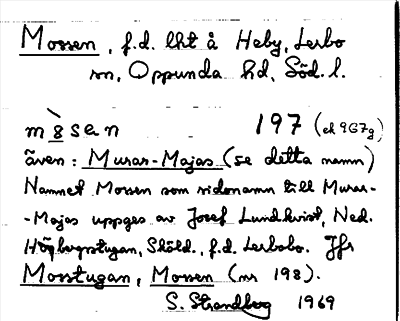 Mossen, f.d. lht å Heby, Lerbo
sn, Oppunda hd, Söd. l.
mòsen 197 (ek 9G7g)
även: Murar-Majas (se detta namn)
Namnet Mossen som sidonamn till Murar-
-Majas uppges av Josef Lundkvist, Ned.
Högbergstugan, Sköld., f.d. Lerbobo. Jfr
Mosstugan, Mossen (nr 198).
S. Strandberg 1969